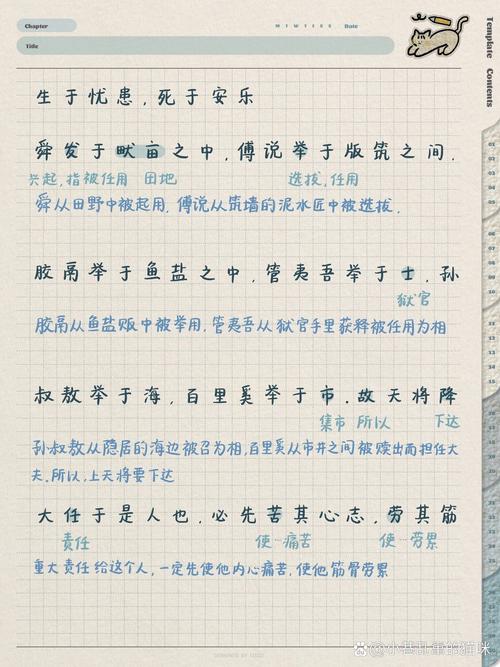 Chapter
MTWTFSS Date
Title
Template Contents
生于忧患,死于安乐
舜发于畎亩之中,傅说举于版筑之间.
兴起,指被任用 田地 选拔,任用
舜从田野中被起用,傅说从筑墙的泥水匠中被选拔.
胶鬲举于鱼盐之中,管夷吾举于士,孙
狱官
胶鬲从鱼盐贩中被举用,管夷吾从狱官手里获释被任用为相
叔敖举于海,百里奚举于市.故天将降
集市 所以 下达
孙叔敖从隐居的海边被召为相,百里奚从市井之间被赎出而担任大
夫.所以,上天将要下达
大任于是人也,必先苦其心志,劳其筋
责任 使…痛苦 使…劳累
重大责任给这个人,一定先使他内心痛苦,使他筋骨劳累